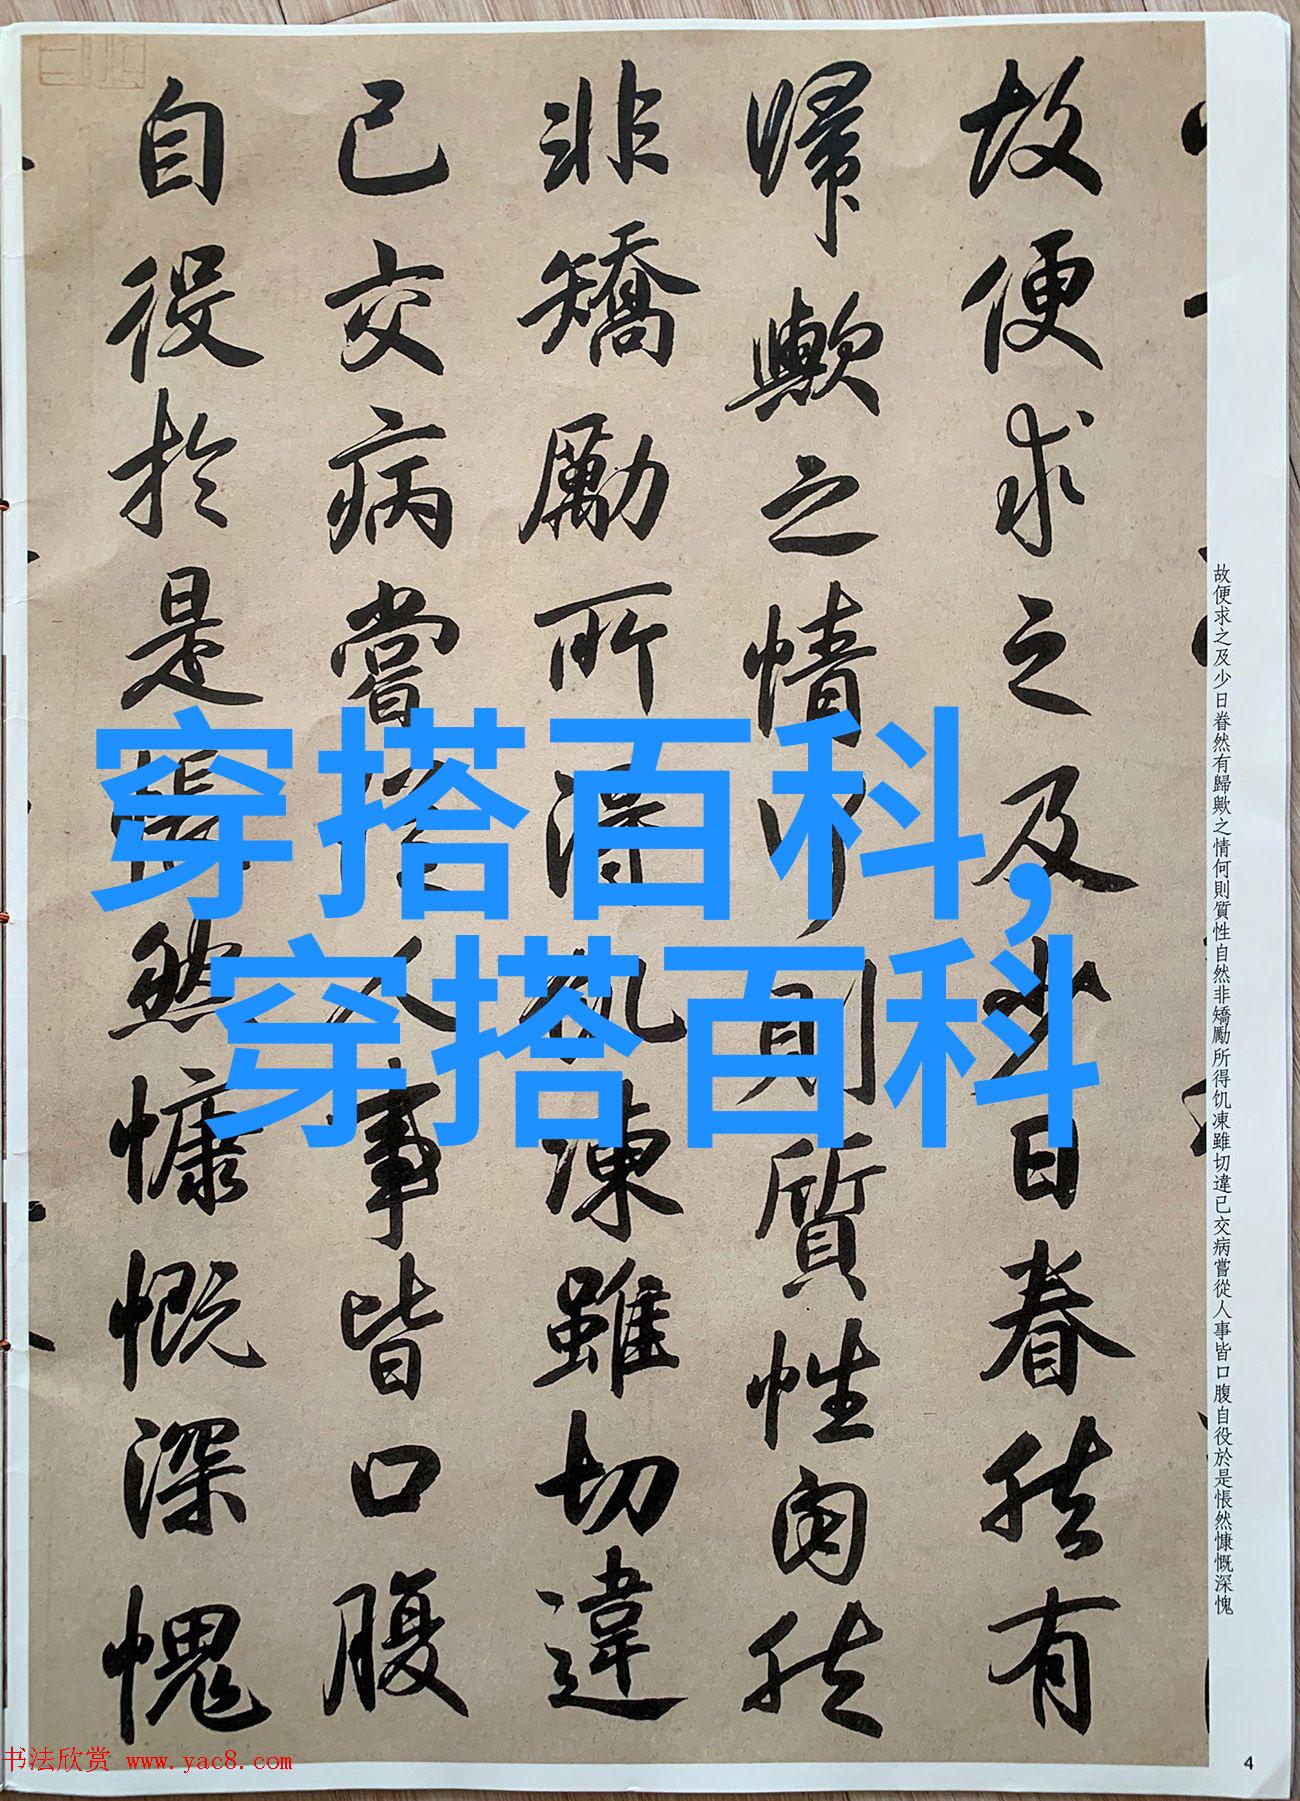 故便求之及少日眷然有歸歟之情何則質性自然非矯勵所得饥凍雖切違已交病嘗從人事皆口腹自役於是悵然慷慨深愧
故便求之及少日眷然有
歸歟之情何則質性自然
非矯勵所得飢凍雖切違
已交病嘗從人事皆口腹
自役於是悵然慷慨深愧
穿搭百科,
穿搭百科
书法欣赏 www.yac8.com
4